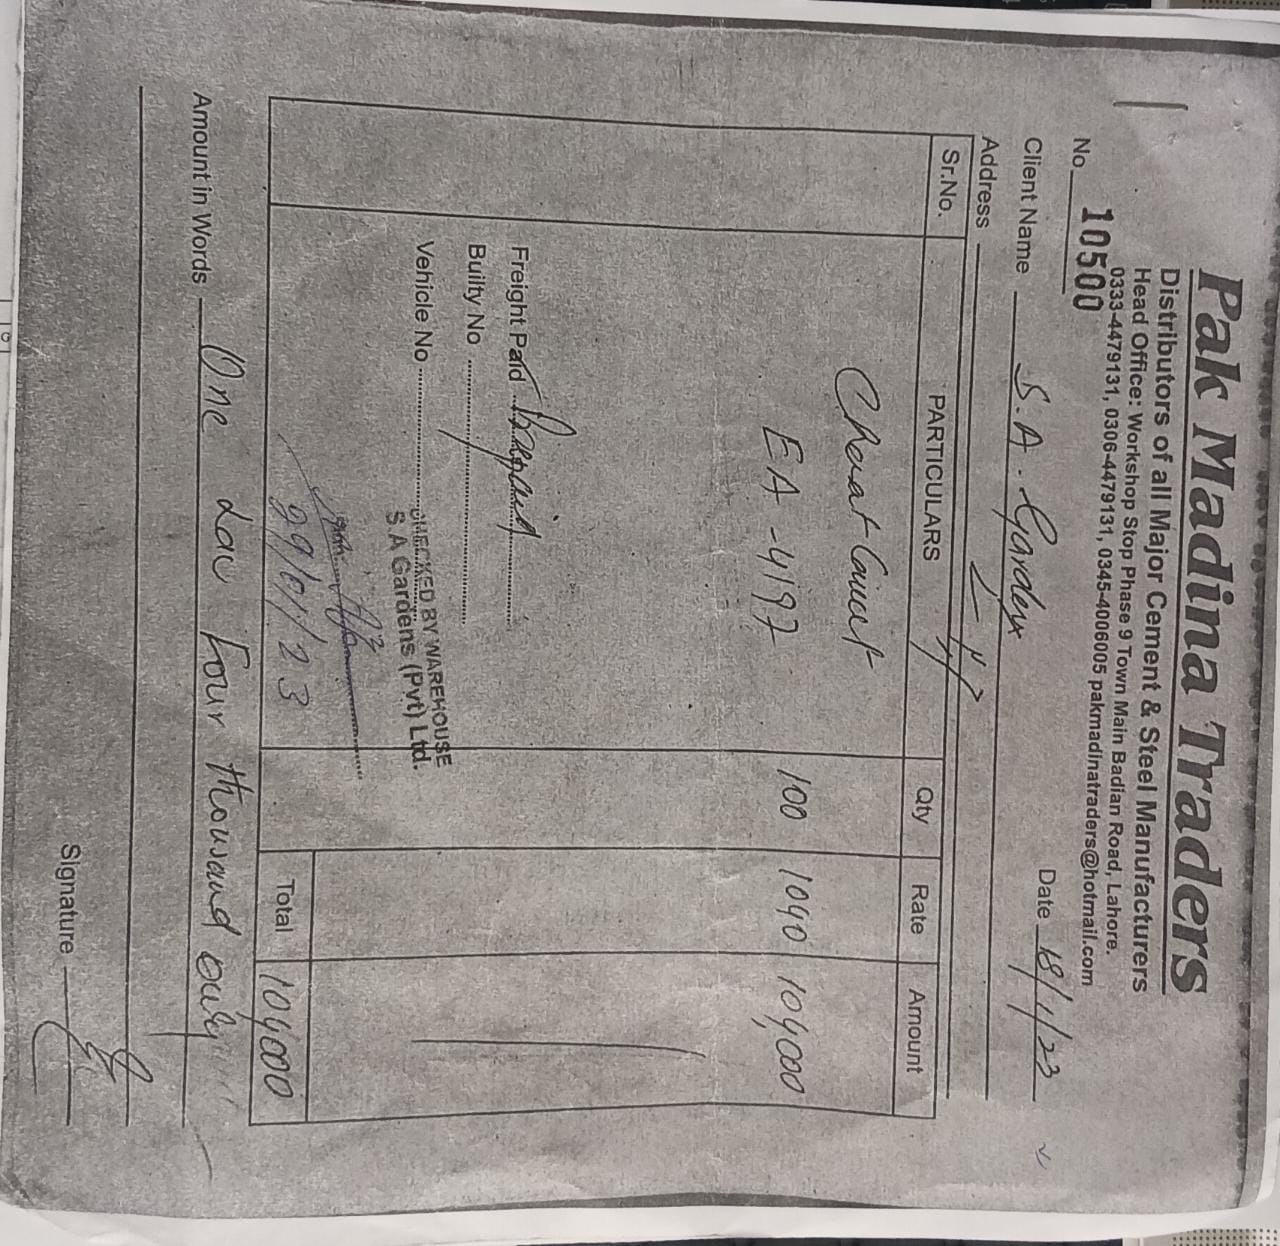 Pak Madina Traders
Distributors of all Major Cement & Steel Manufacturers
Head Office: Workshop Stop Phase 9 Town Main Badian Road, Lahore.
0333-4479131, 0306-4479131, 0345-4006005 pakmadinatraders@hotmail.com
No 10500
Date 18/1/23
Client Name S.A. Garden
Address
Sr.No. PARTICULARS Qty Rate Amount
Cherat
EA-4197 100 1040 104,000
Freight Paid Prepaid
Builty No
Vehicle No
CHECKED BY WAREHOUSE
S.A Gardens (Pvt) Ltd.
Total 104000
Amount in Words One Lac Four thousand only
Signature